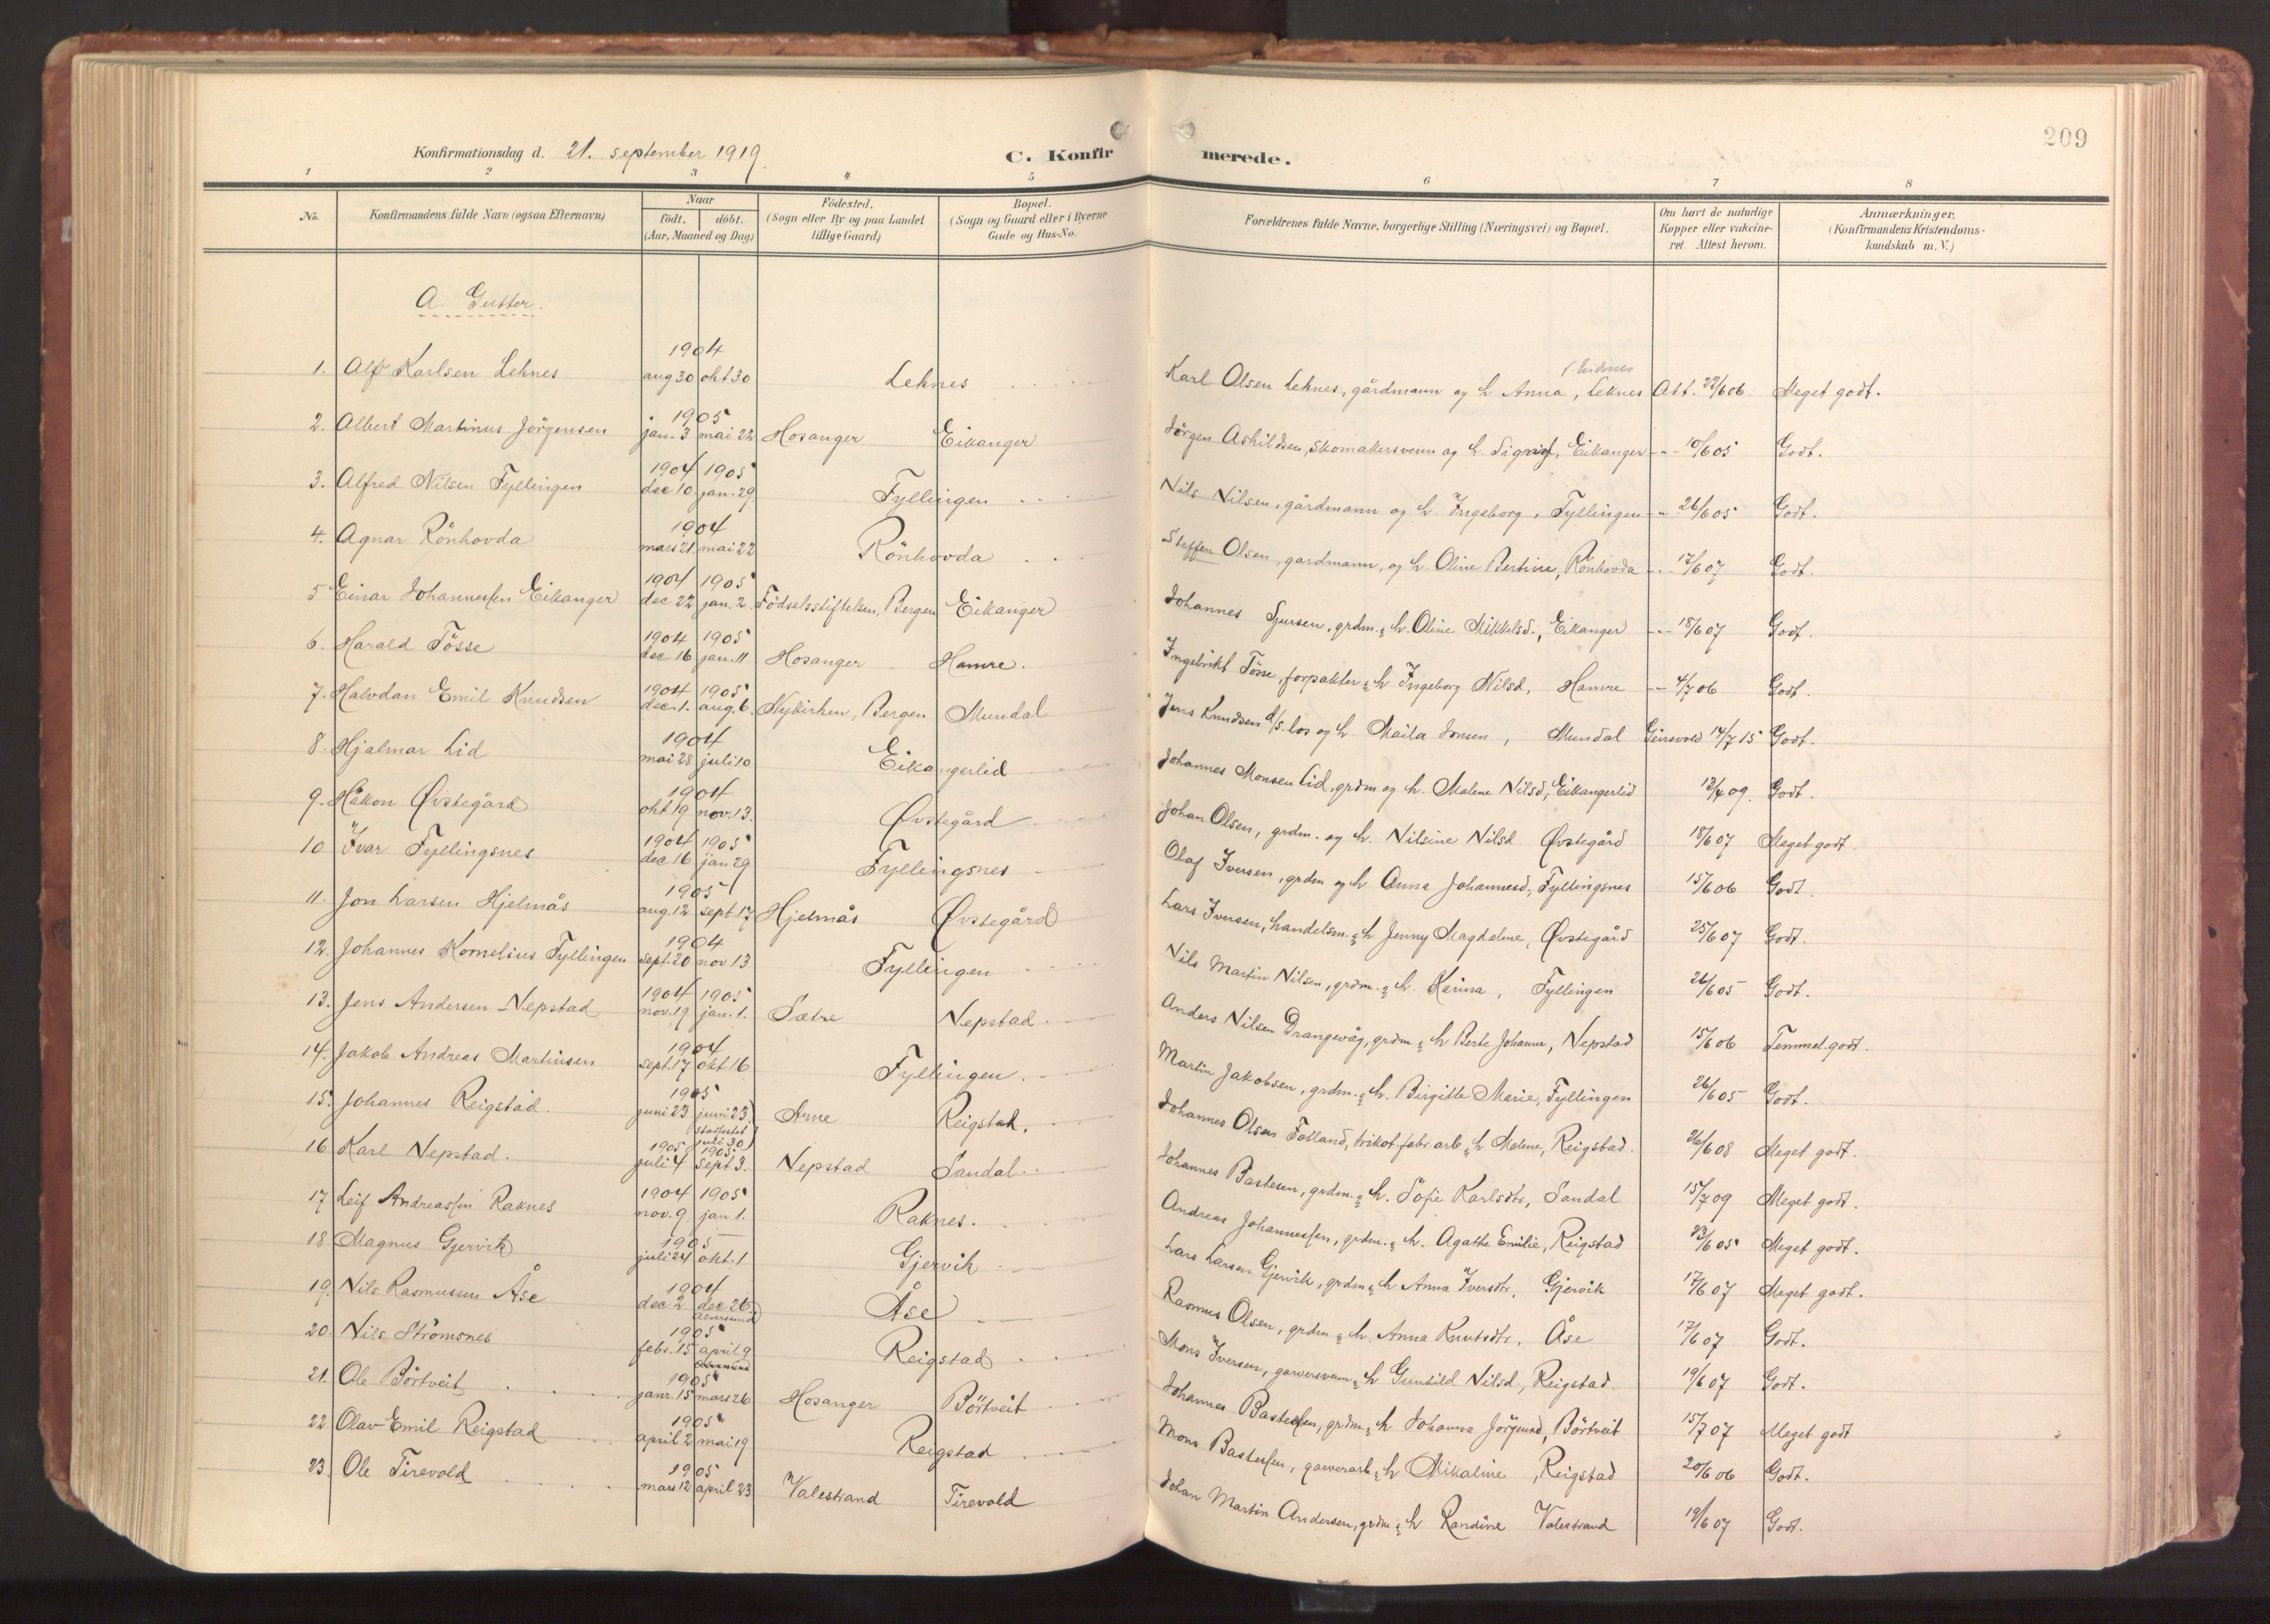 209
Konfirmationsdag d. 21. september 1919.
C. Konfirmerede.
1 2 3 4 5 6 7 8
No. Konfirmandens fulde Navn (ogsaa Efternavn) Naar födt. döbt. (Aar, Maaned og Dag) Födested. (Sogn eller By og paa Landet tillige Gaard) Bopæl. (Sogn og Gaard eller i Byerne Gade og Hus-No. Forældrenes fulde Navne, borgerlige Stilling (Næringsvei) og Bopæl. Om havt de naturlige Kopper eller vakcineret. Attest herom. Anmærkninger. (Konfirmandens Kristendomskundskab m. V.)
A. Gutter.
1. Alf Karlsen Leknes 1904 aug 30 okt 30 Leknes Karl Olsen Leknes, gårdmann og h. Anna, Leknes Att. 22/6 06 Meget godt.
2. Albert Martinus Jörgensen 1905 jan. 3 mai 22 Hosanger Eikanger Jörgen Askildsen, skomakersvenn og h. Signy, Eikanger -"- 10/6 05 Godt.
3. Alfred Nilsen Fyllingen 1904 dec 10. 1905 jan. 29 Fyllingen Nils Nilsen, gårdmann og h. Ingeborg, Fyllingen -"- 26/6 05 Godt.
4. Agnar Rönhovda 1904 mars 21 mai 22 Rönhovda Steffen Olsen, gardmann, og h. Oline Bertine, Rönhovda -"- 17/6 07 Godt.
5 Einar Johannessen Eikanger 1904 dec 22 1905 jan. 2 Födselsstiftelsen, Bergen Eikanger Johannes Sjursen, grdm. & h. Oline Mikkelsd., Eikanger -"- 18/6 07 Godt.
6. Harald Tösse 1904 dec 16 1905 jan. 11 Hosanger Hamre. Ingebrikt Tösse, forpakter & h Ingeborg Nilsd, Hamre -"- 4/7 06 Godt.
7. Halvdan Emil Knudsen 1904 dec. 1. 1905 aug. 6. Nykirken, Bergen Mundal Jens Knudsen d/s. los og h. Maila Jonsen, Mundal 14/7 15 Godt.
8. Hjalmar Lid 1904 mai 28 juli 10 Eikangerlid Johannes Monsen Lid, grdm og h. Malene Nilsd, Eikangerlid 09. Godt.
9. Håkon Øvstegård 1904 okt 19 nov. 13. Øvstegård Johan Olsen, grdm. og h. Nilsine Nilsd Øvstegård 18/6 07 Meget godt.
10 Ivar Fyllingsnes 1904 dec 16 1905 jan 29 Fyllingsnes Olaf Iversen, grdm og h. Anna Johannesd, Fyllingsnes 15/6 06 Godt.
11. Jon Larsen Hjelmås 1905 aug. 12 sept. 17 Hjelmås Øvstegård Lars Iversen, handelsm. & h Jenny Magdalene, Øvstegård 25/6 07 Godt.
12. Johannes Kornelius Fyllingen 1904 sept. 20 nov 13 Fyllingen Nils Martin Nilsen, grdm. & h. Karina, Fyllingen 26/6 05 Godt.
13. Jens Andersen Nepstad 1904 nov. 19 1905 jan. 1. Sætre Nepstad Anders Nilsen Drangevåg, grdm & h Berte Johanne, Nepstad 15/6 06 Temmel. godt.
14. Jakob Andreas Martinsen 1904 sept. 17 okt 16 Fyllingen. Martin Jakobsen, grdm. & h. Birgitte Marie, Fyllingen 26/6 05 Godt.
15. Johannes Reigstad. 1905 juni 23 juni 23 stadfestet juli 30 Arne Reigstad. Johannes Olsen Fotland, trikot. fabr. arb & h Malene, Reigstad. 26/6 08 Meget godt.
16 Karl Nepstad. 1905 juli 4 1905 sept 3. Nepstad Sandal Johannes Bastesen, grdm. & h. Sofie Karlsdtr, Sandal 15/7 09 Meget godt.
17 Leif Andreassen Raknes 1904 nov. 9 1905 jan 1. Raknes. Andreas Johannessen, grdm. & h. Agathe Emilie, Reigstad 23/6 05 Meget godt.
18 Magnus Gjervik 1905 juli 24 okt. 1 Gjervik Lars Larsen Gjervik, grdm & h Anna Iversdtr, Gjervik 17/6 07 Meget godt.
19. Nils Rasmussen Åse 1904 dec 2 dec 26 Alversund Åse Rasmus Olsen, grdm & h. Anna Knutsdtr, Åse 17/6 07 Godt.
20. Nils Strömsnes 1905 febr. 15 april 9 Reigstad Mons Iversen, garversvenn & h Gunhild Nilsd., Reigstad. 19/6 07 Godt.
21. Ole Börtveit 1905 janr. 15 mars 26 Hosanger Börtveit Johannes Bastessen, grdm & h Johanna Jörgensd, Börtveit 15/7 07 Meget godt
22 Olav Emil Reigstad 1905 april 2 mai 19 Reigstad Mons Bastessen, garverarb & h Mikaline, Reigstad 20/6 06 Godt.
23. Ole Tirevold 1905 mars 12 april 23 Valestrand Tirevold Johan Martin Andersen, grdm & h Randine Valestrand 19/6 07 Godt.